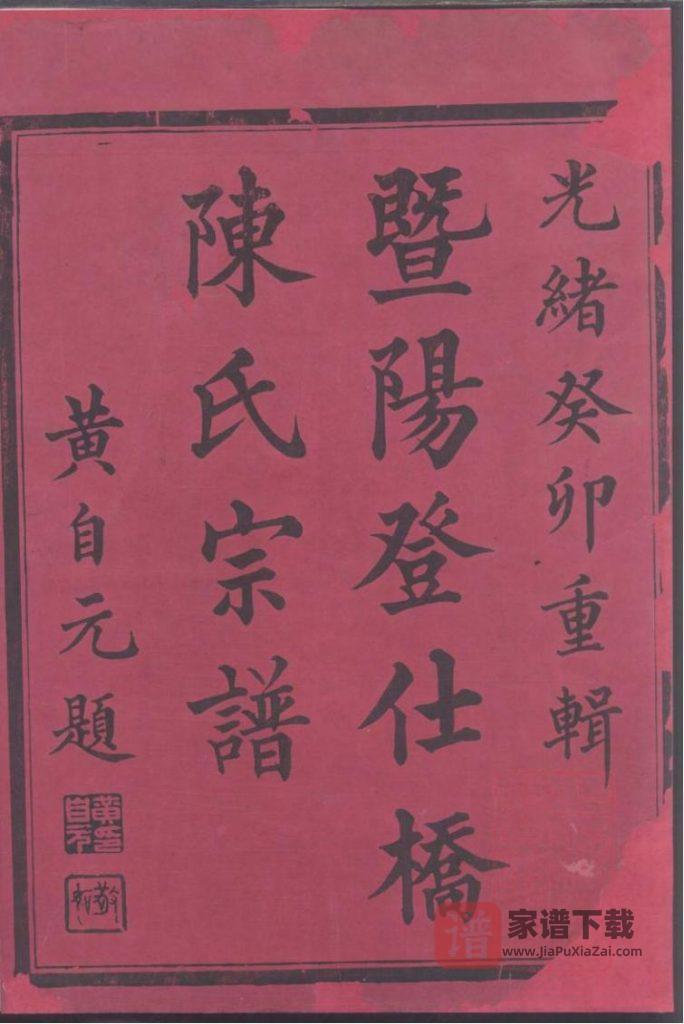 光緒癸卯重輯
暨陽登仕橋
陳氏宗譜
黃自元題
黃自元印
谱
家谱下载
www.JiaPuXiaZai.com